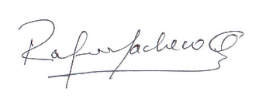 Rafael Pacheco